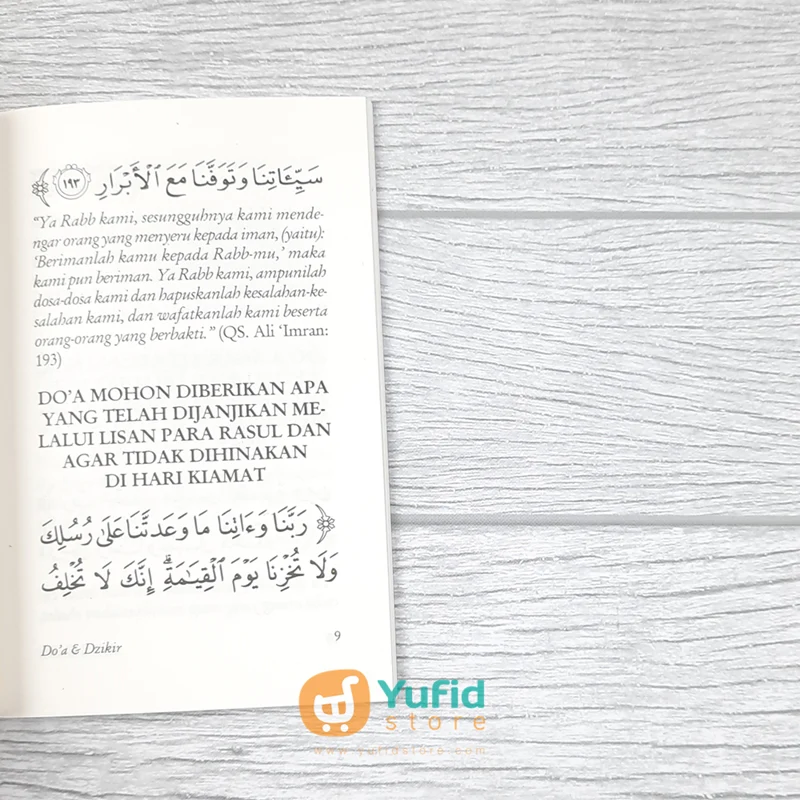 سَيِّـَٔاتِنَا وَتَوَفَّنَا مَعَ ٱلْأَبْرَارِ ١٩٣
"Ya Rabb kami, sesungguhnya kami mende-
ngar orang yang menyeru kepada iman, (yaitu):
'Berimanlah kamu kepada Rabb-mu,' maka
kami pun beriman. Ya Rabb kami, ampunilah
dosa-dosa kami dan hapuskanlah kesalahan-ke-
salahan kami, dan wafatkanlah kami beserta
orang-orang yang berbakti." (QS. Ali 'Imran:
193)
DO'A MOHON DIBERIKAN APA
YANG TELAH DIJANJIKAN ME-
LALUI LISAN PARA RASUL DAN
AGAR TIDAK DIHINAKAN
DI HARI KIAMAT
رَبَّنَا وَءَاتِنَا مَا وَعَدتَّنَا عَلَىٰ رُسُلِكَ
وَلَا تُخْزِنَا يَوْمَ ٱلْقِيَـٰمَةِ ۗ إِنَّكَ لَا تُخْلِفُ
Do'a & Dzikir 9
Yufid
store
www.yufidstore.com